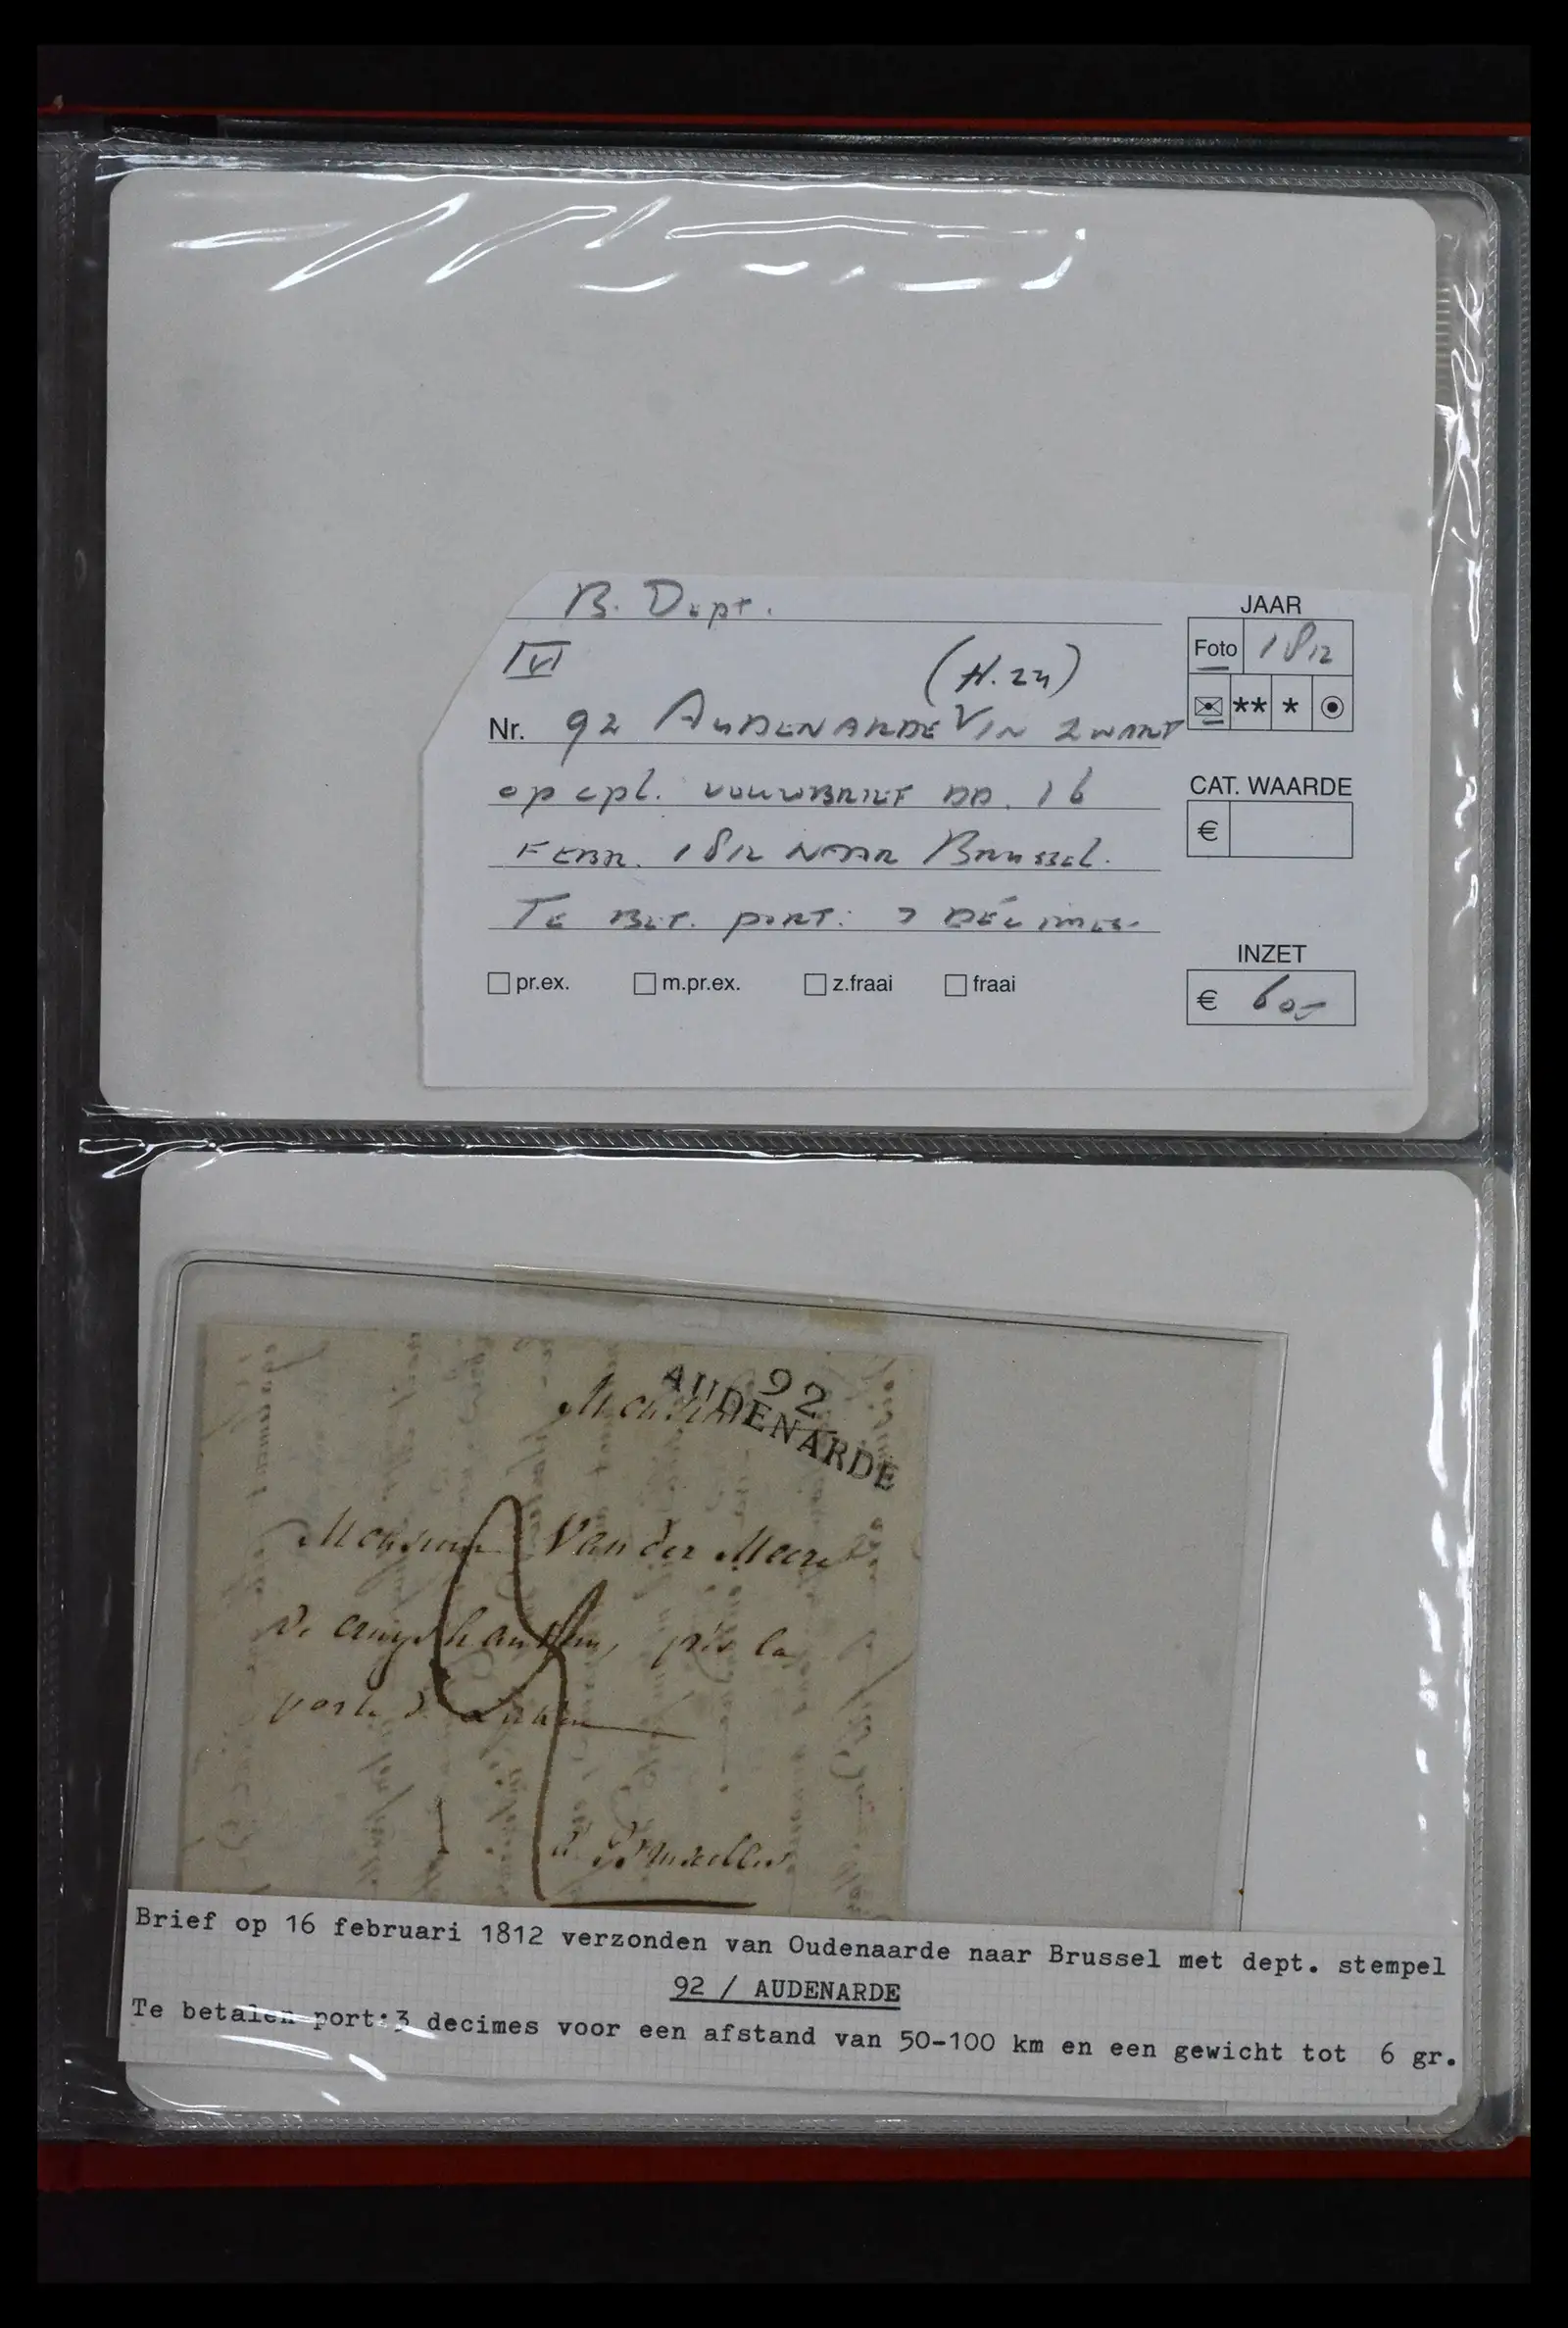 B. Dept.
JAAR
Foto 1812
IV (H. 24)
** *
Nr. 92 AUDENARDE IN ZWART
op cpl. VOUWBRIEF DD. 16
CAT. WAARDE
€
FEBR. 1812 NAAR BRUSSEL.
TE BET. PORT: 3 DÉCIMES.
INZET
pr.ex. m.pr.ex. z.fraai fraai
€ 60,-
92
AUDENARDE
Monsieur
Monsieur Van der Meere
De près la
porte De
à Bruxelles
Brief op 16 februari 1812 verzonden van Oudenaarde naar Brussel met dept. stempel
92 / AUDENARDE
Te betalen port:3 decimes voor een afstand van 50-100 km en een gewicht tot 6 gr.